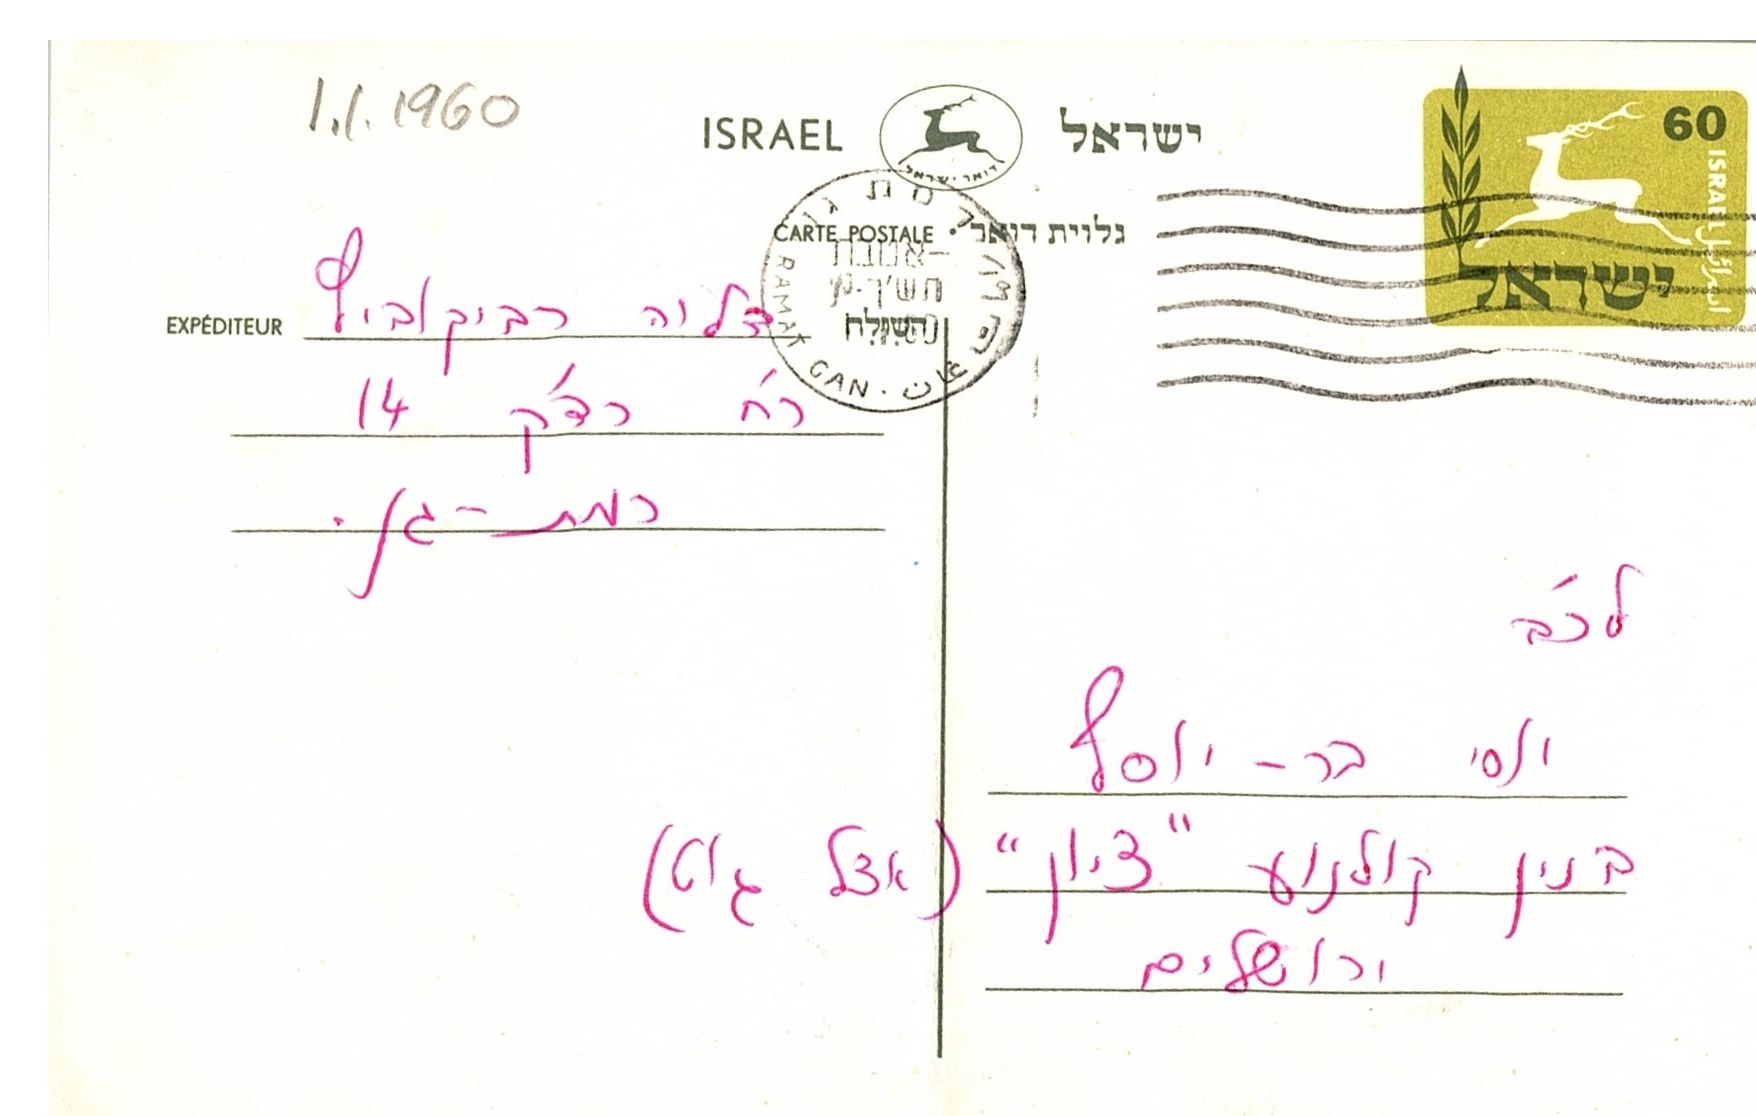 1.1.1960
ISRAEL ישראל
דואר ישראל
CARTE POSTALE · גלוית דואר
60
ISRAEL اسرائيل
ישראל
RAMAT GAN
EXPÉDITEUR דליה רביקוביץ
רח' רד"ק 14
רמת-גן.
לכ'
יוסי בר-יוסף
בנין קולנוע "ציון" (אצל גוט)
ירושלים